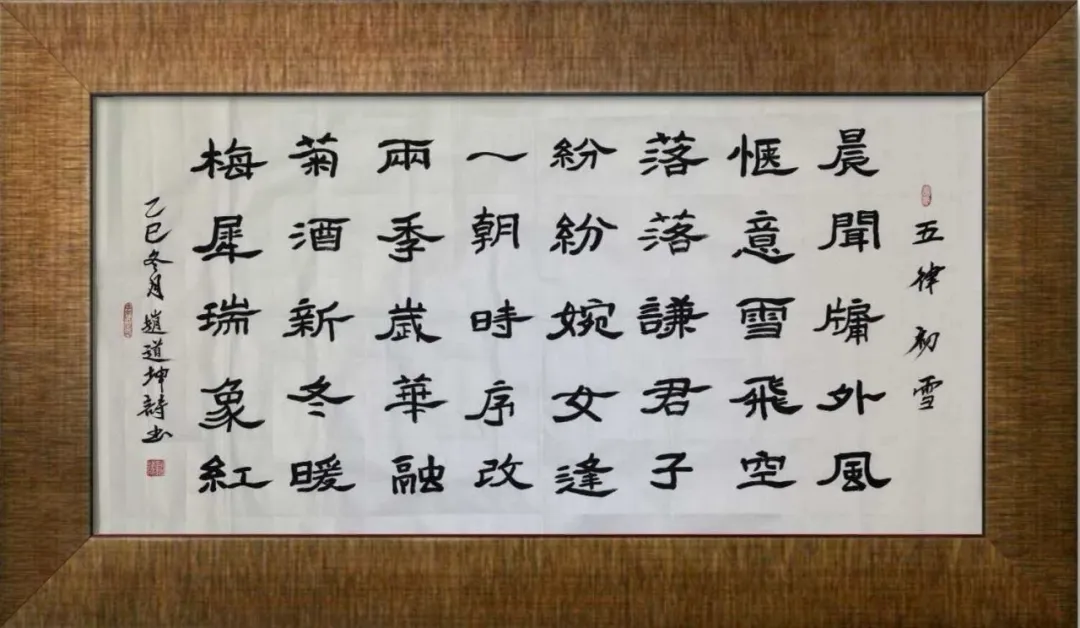 五律 初雪
晨聞牗外風
愜意雪飛空
落落謙君子
紛紛婉女逢
一朝時序改
兩季歲華融
菊酒新冬暖
梅犀瑞象紅
乙巳冬月 趙道坤詩书